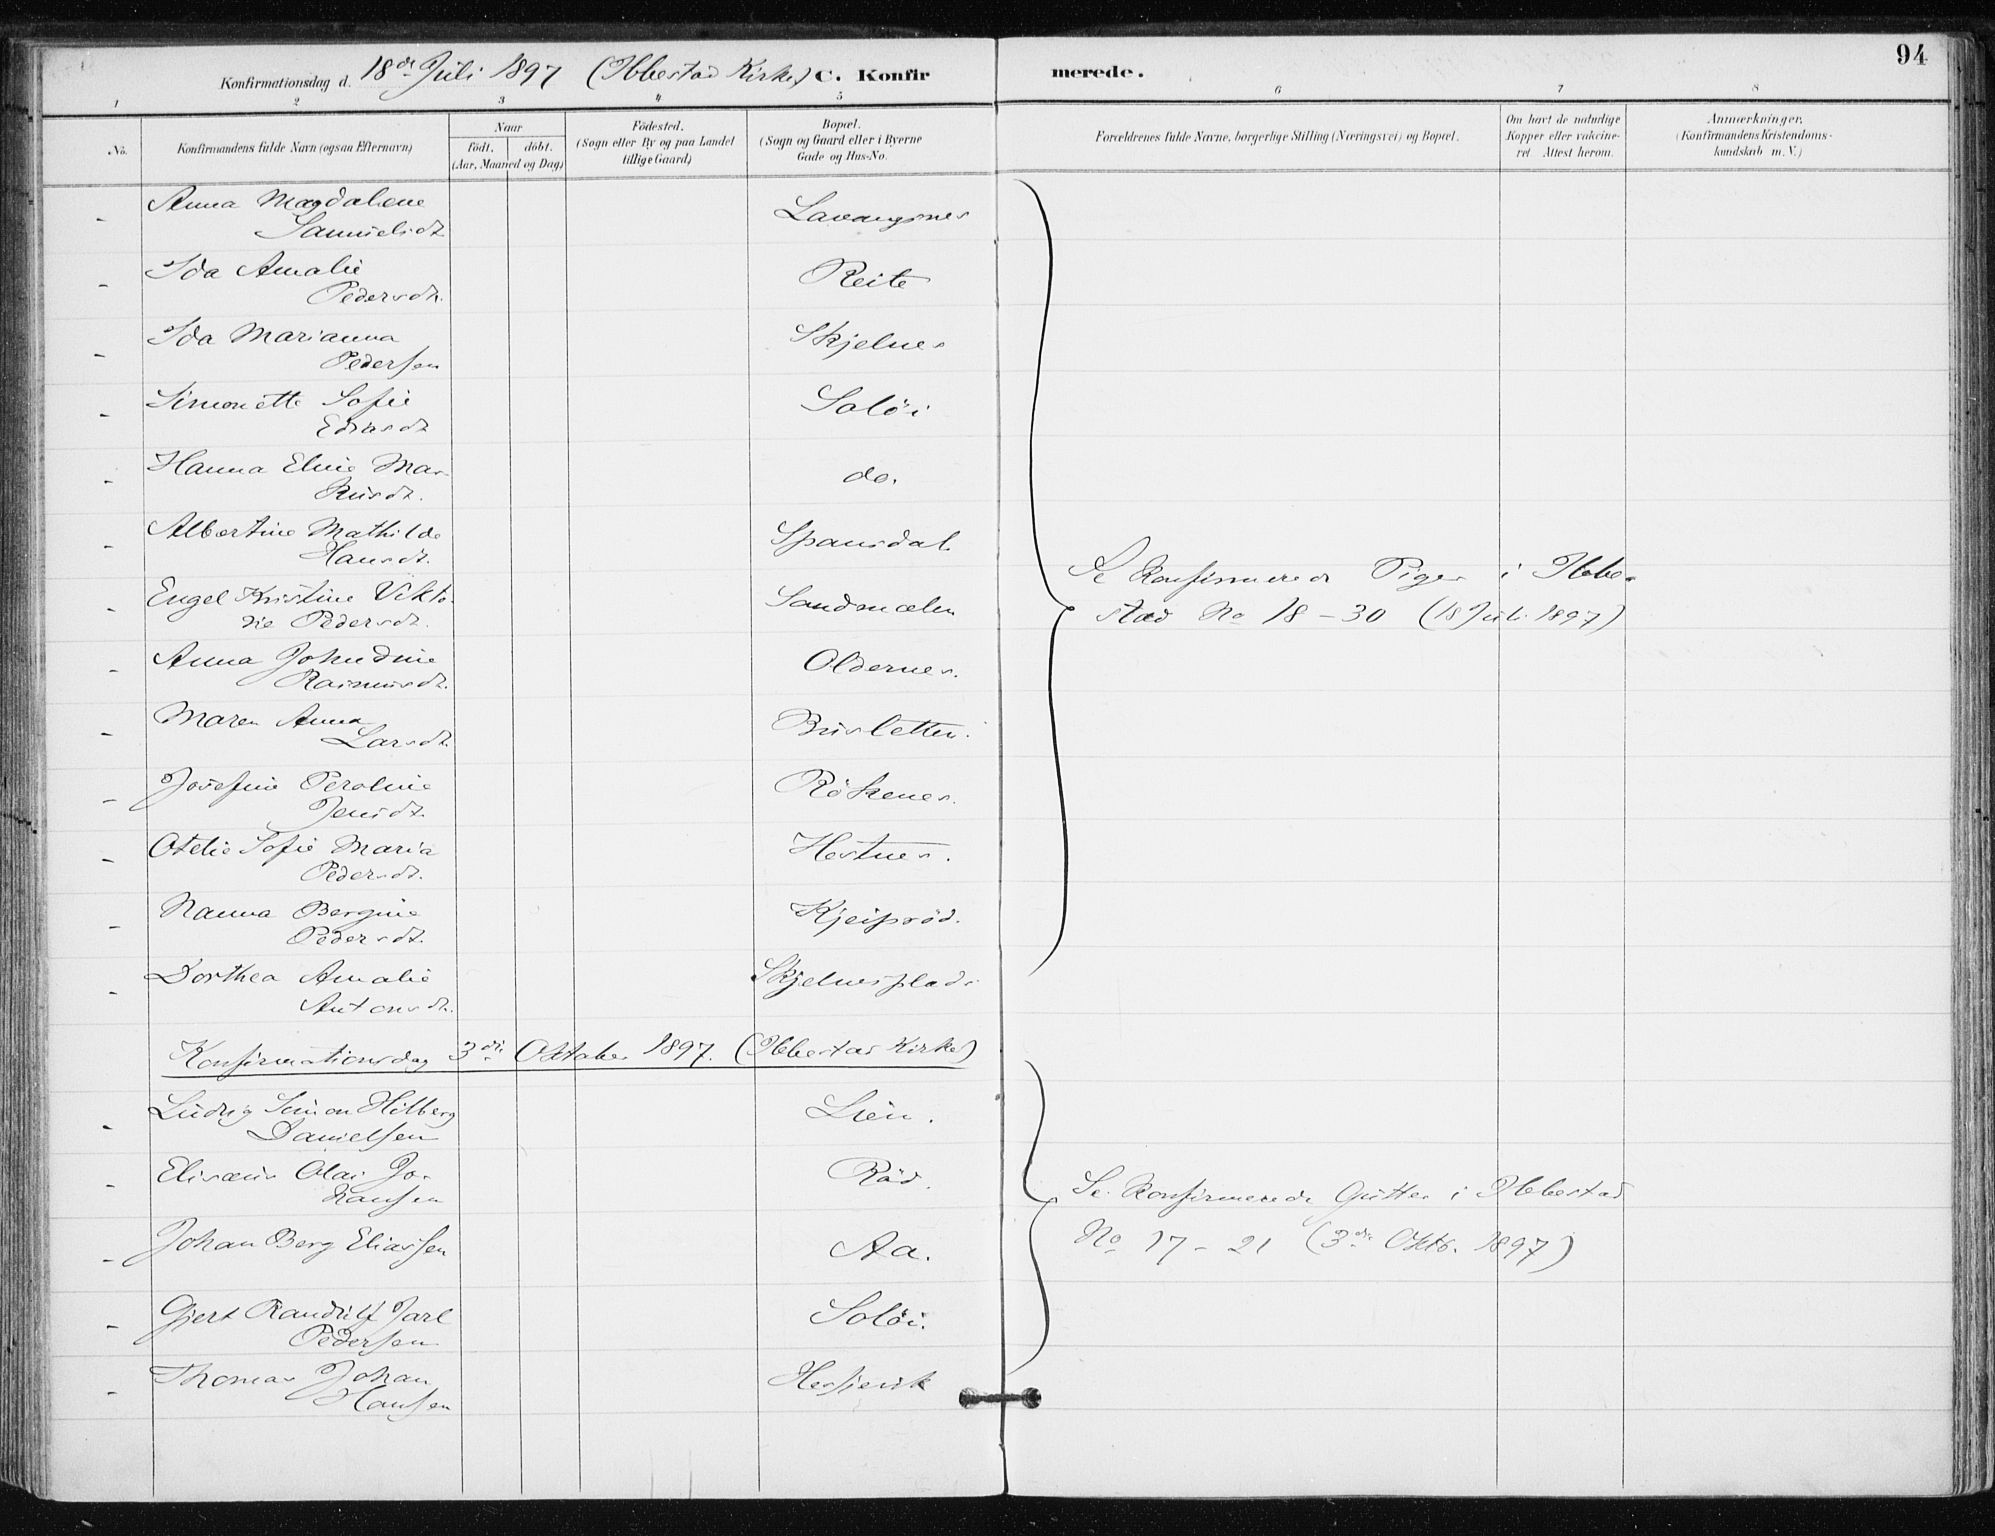 94
Konfirmationsdag d. 18de Juli 1897 (Ibbestad Kirke) C. Konfirmerede.
1 2 3 4 5 6 7 8
No.
Konfirmandens fulde Navn (ogsaa Efternavn)
Naar
födt. döbt.
(Aar, Maaned og Dag)
Födested.
(Sogn eller By og paa Landet
tillige Gaard)
Bopæl.
(Sogn og Gaard eller i Byerne
Gade og Hus-No.
Forældrenes fulde Navne, borgerlige Stilling (Næringsvei) og Bopæl.
Om havt de naturlige
Kopper eller vaccine-
ret. Attest herom.
Anmærkninger.
(Konfirmandens Kristendoms-
kundskab m. V.)
- Anna Magdalene Lavangsnes
Samuelsdt.
- Ida Amalie Reite
Pedersdt.
- Ida Marianna Skjelnes
Pedersen
- Simonette Sofie Soløi
Edvasdt.
- Hanna Elvie Mar- do.
kusdt.
- Albertine Mathilde Spansdal
Hansdt.
- Engel Kristine Vikto- Sandmælen
rie Pedersdt.
Se Konfirmerede Piger i Ibbe-
stad No 18-30 (18 Juli 1897)
- Anna Johndine Oldernes.
Rasmusdt.
- Maren Anna Brusletten.
Larsdt.
- Josefine Peroline Rökenes.
Jensdt.
- Otelie Sofie Maria Hestnes.
Pedersdt.
- Nanna Bergine Kjeipröd.
Pedersdt.
- Dorthea Amalie Skjelnesplads
Antonsdt.
Konfirmationsdag 3die Oktober 1897. (Ibbestad Kirke)
- Ludvig Simon Hilberg Lien.
Danielsen
- Elisæus Olai Jo- Röd.
hansen
Se Konfirmerede Gutter i Ibbestad
No 17-21 (3die Oktb. 1897)
- Johan Berg Eliassen Aa.
- Gjert Randulf Jarl Soløi.
Pedersen
- Thomas Johan Hesjevik
Hansen